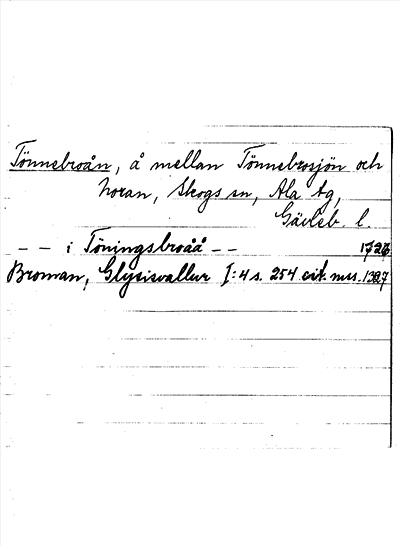 Tönnebroån, å mellan Tönnebrosjön och
Noran, Skogs sn, Ala tg,
Gävleb. l.
– – i Töningsbroåå – – 1726
Broman, Glysisvallur I:4 s. 254 cit. mss. 1387